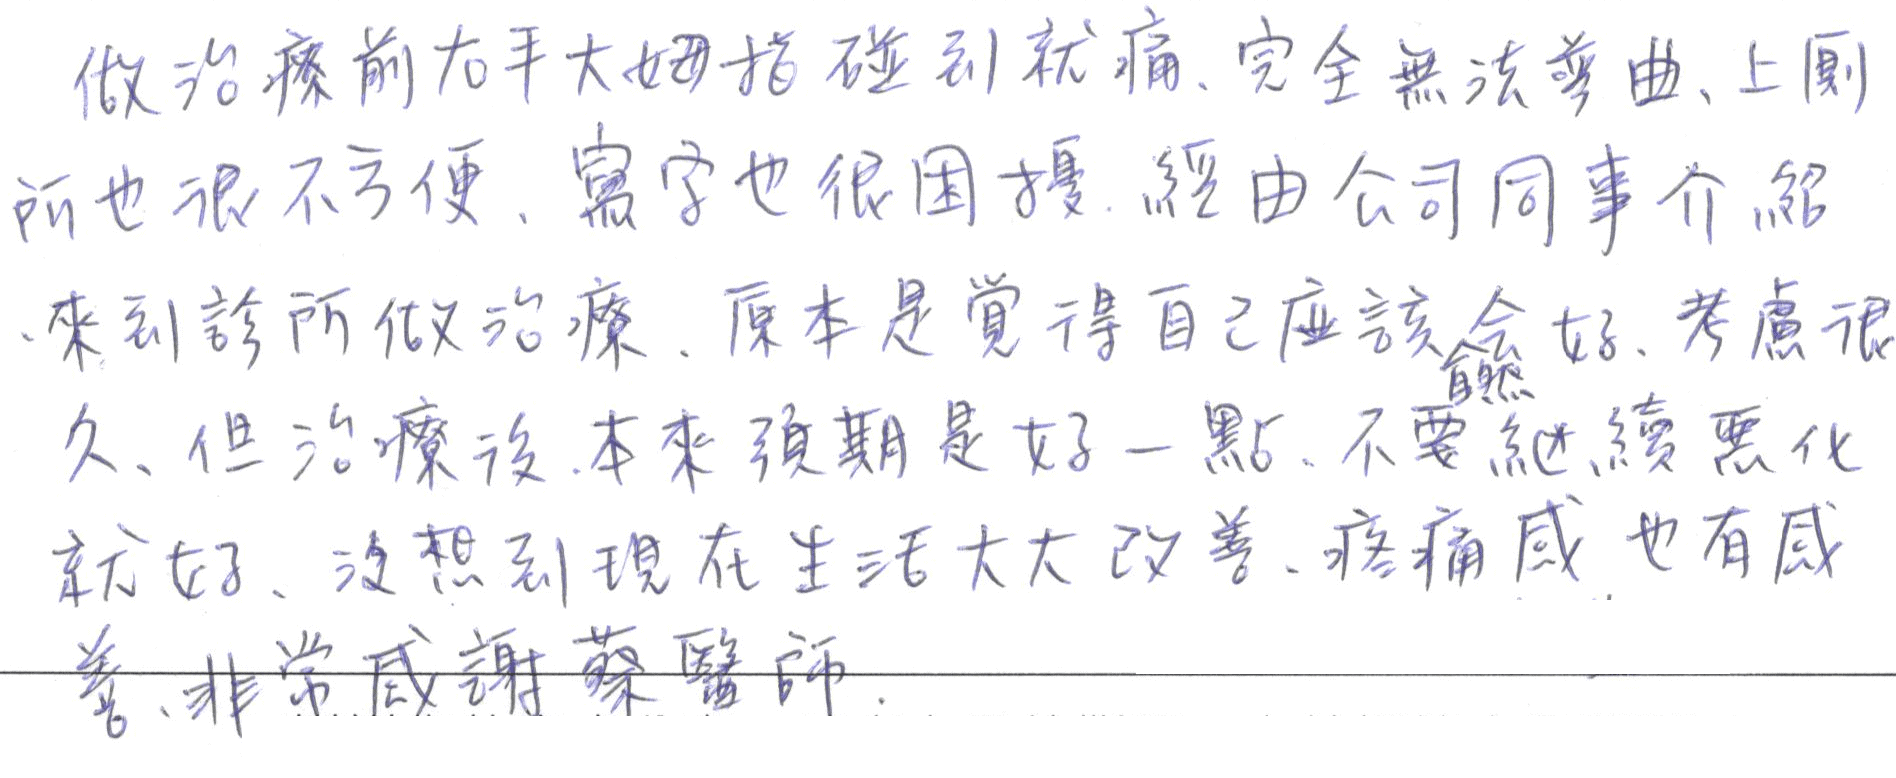 做治療前右手大姆指碰到就痛、完全無法彎曲、上厠
所也很不方便、寫字也很困擾.經由公司同事介紹
、來到診所做治療、原本是覺得自己應該自然會好、考慮很
久、但治療後.本來預期是好一點、不要繼續惡化
就好、沒想到現在生活大大改善、疼痛感也有感
善、非常感謝蔡醫師.